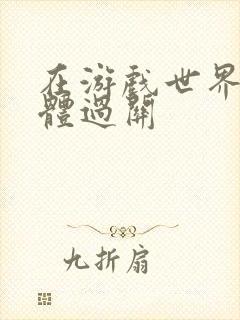 在游戲世界
體過關
九折扇